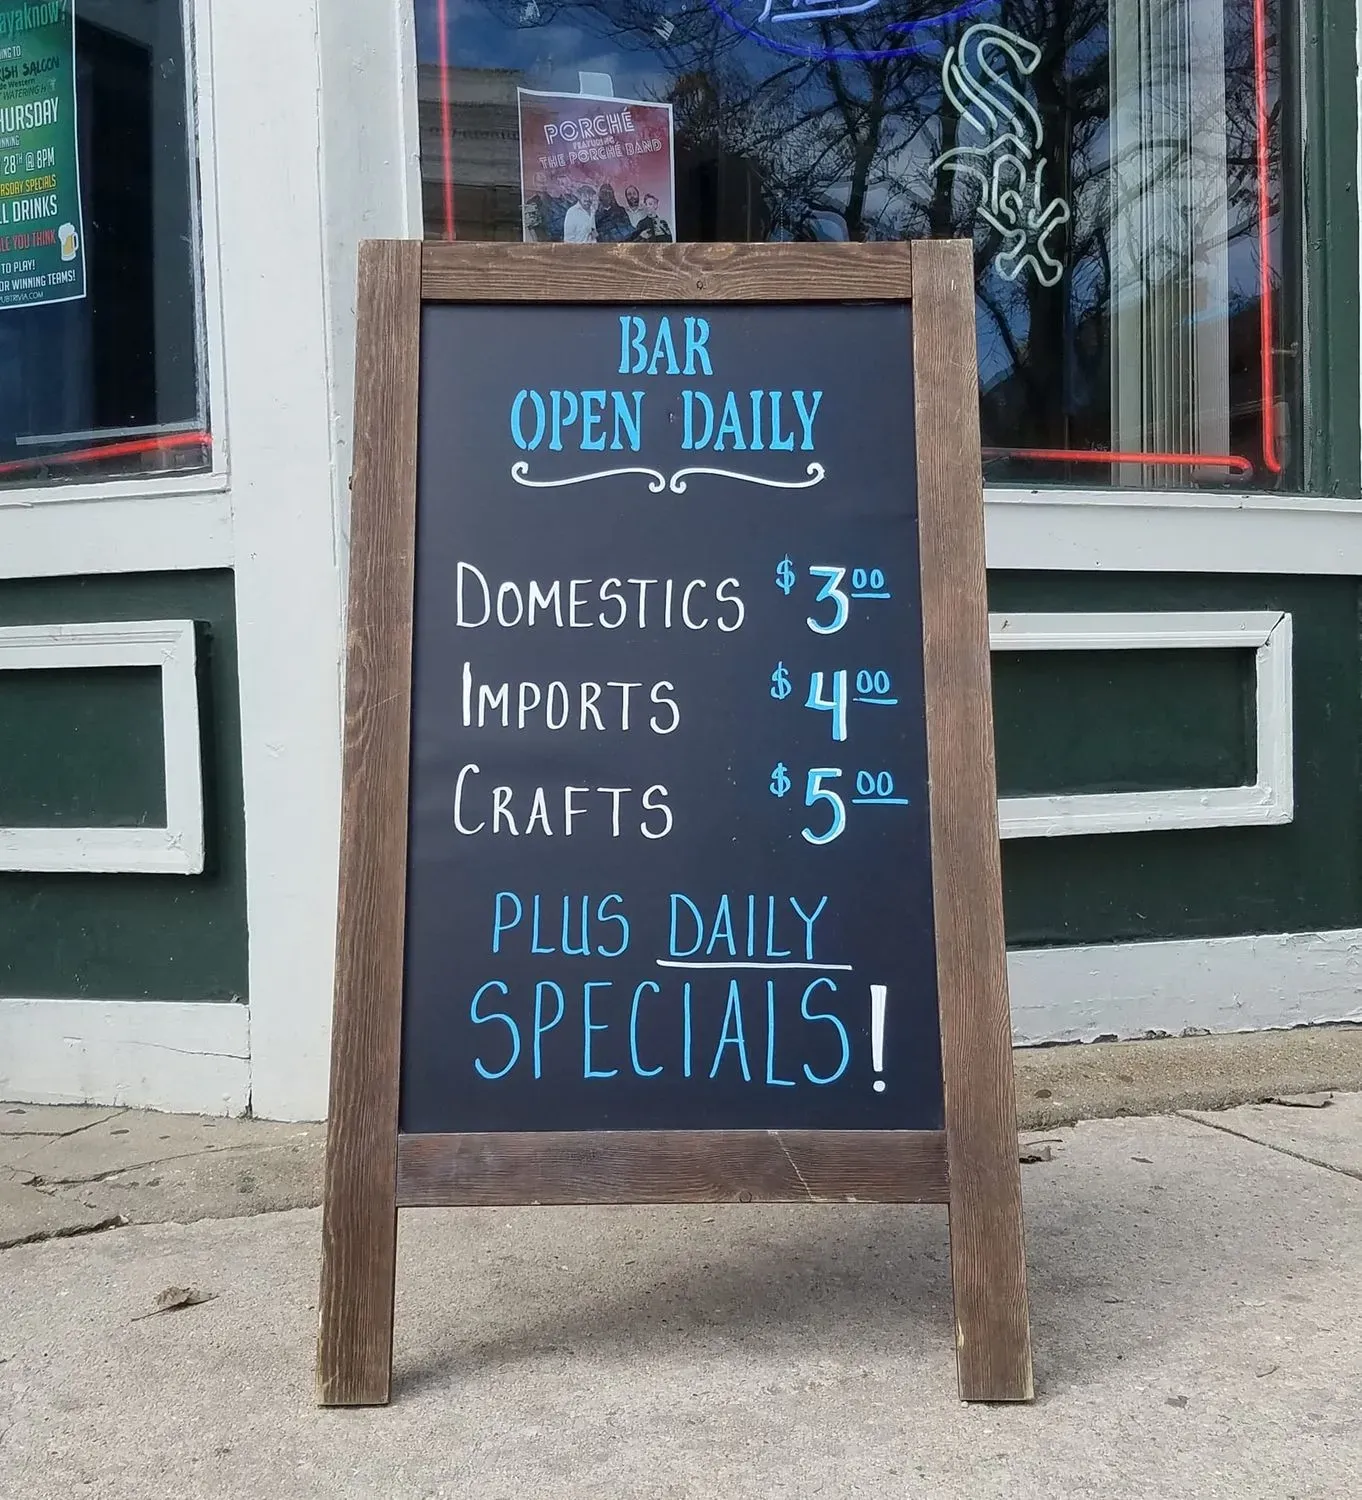 ayaknow?
ING TO
RISH SALOON
de Western
WATERING H
HURSDAY
NNING
28TH @ 8PM
RSDAY SPECIALS
LL DRINKS
LE YOU THINK
TO PLAY!
OR WINNING TEAMS!
PUBTRIVIA.COM
PORCHÉ
FEATURING
THE PORCHÉ BAND
Sox
BAR
OPEN DAILY
DOMESTICS $3.00
IMPORTS $4.00
CRAFTS $5.00
PLUS DAILY
SPECIALS!